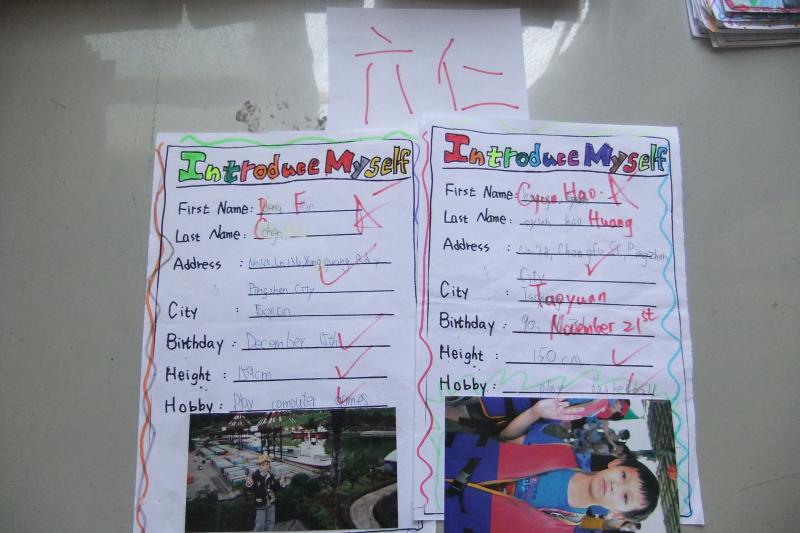 六仁
Introduce Myself
First Name: Fan A-
Last Name: Chen
Address :
Pingzhen City
City :
Birthday : December 15th
Height : 149cm
Hobby: Play computer games
Introduce Myself
First Name: Cyun Hao. A
Last Name: cyun hao Huang
Address : St, Pingzhen
City
City : Taoyuan
Birthday : 90. November 21st
Height : 150 cm
Hobby: play basketball